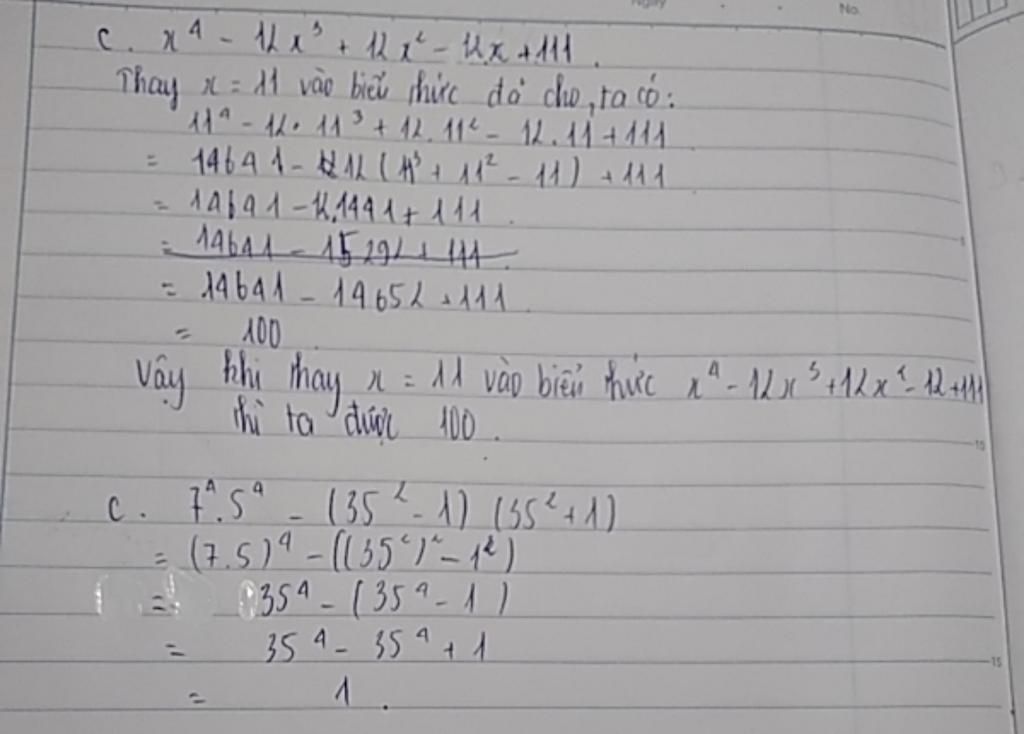 Ngày No.
c. x⁴ - 12x³ + 12x² - 12x + 111.
Thay x = 11 vào biểu thức đã cho, ta có:
11⁴ - 12.11³ + 12.11² - 12.11 + 111
= 14641 - 12(11³ + 11² - 11) + 111
= 14641 - 12.1441 + 111
= 14641 - 15292 + 111
= 14641 - 14652 + 111
= 100
Vậy khi thay x = 11 vào biểu thức x⁴ - 12x³ + 12x² - 12 + 111
thì ta được 100.
10
c. 7⁴.5⁴ - (35² - 1)(35² + 1)
= (7.5)⁴ - ((35²)² - 1²)
= 35⁴ - (35⁴ - 1)
= 35⁴ - 35⁴ + 1
15
= 1.